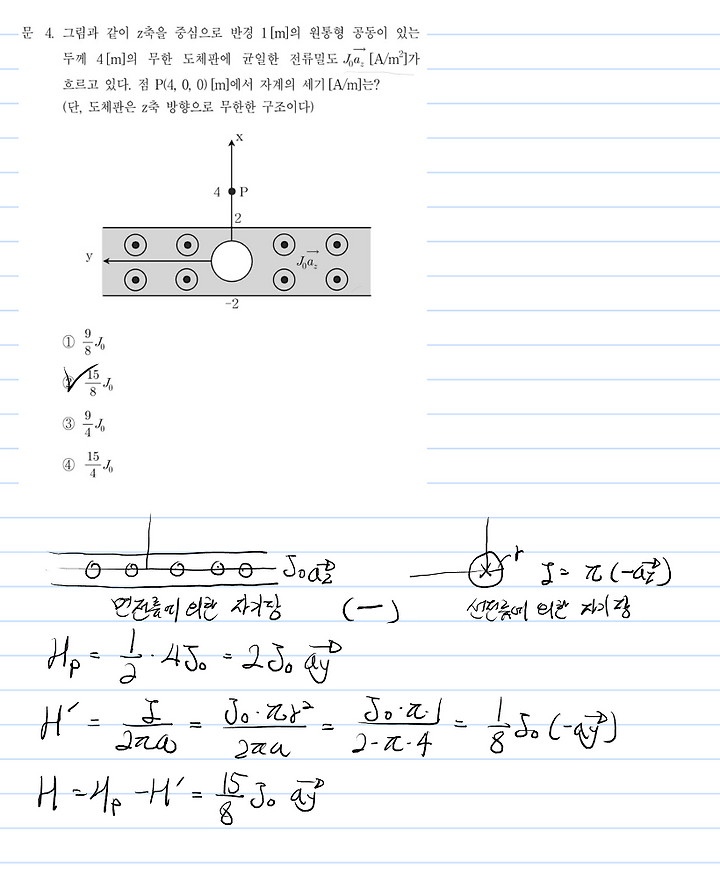 문 4. 그림과 같이 z축을 중심으로 반경 1[m]의 원통형 공동이 있는
두께 4[m]의 무한 도체판에 균일한 전류밀도 J₀a⃗z [A/m²]가
흐르고 있다. 점 P(4, 0, 0)[m]에서 자계의 세기[A/m]는?
(단, 도체판은 z축 방향으로 무한한 구조이다)
x
4 P
2
y
J₀a⃗z
-2
① 9/8 J₀
② 15/8 J₀
③ 9/4 J₀
④ 15/4 J₀
J₀a⃗z r I = π(-a⃗z)
면전류에 의한 자기장 (-) 선전류에 의한 자기장
Hp = 1/2 · 4J₀ = 2J₀ a⃗y
H′ = I/2πa = J₀·πr²/2πa = J₀·π·1/2·π·4 = 1/8 J₀ (-a⃗y)
H = Hp - H′ = 15/8 J₀ a⃗y